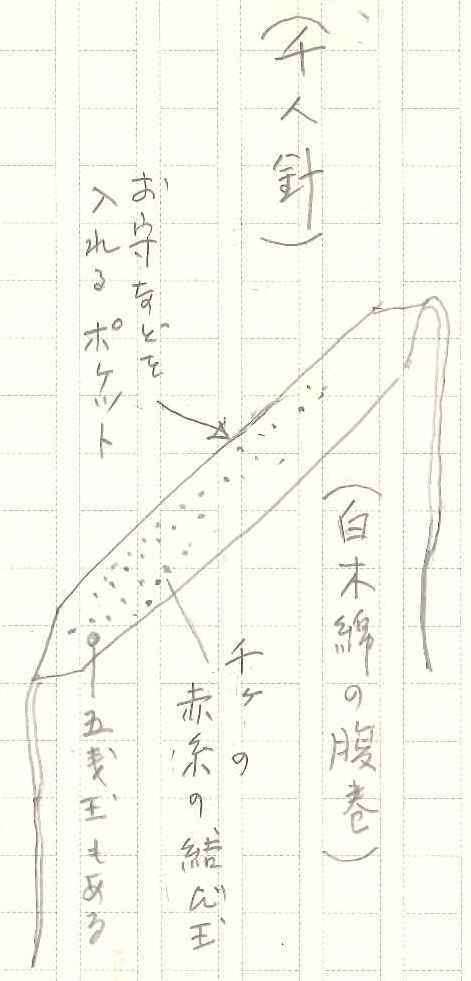 （千人針）
お守などを
入れるポケット
（白木綿の腹巻）
千ヶの
赤糸の結び玉
五銭玉もある